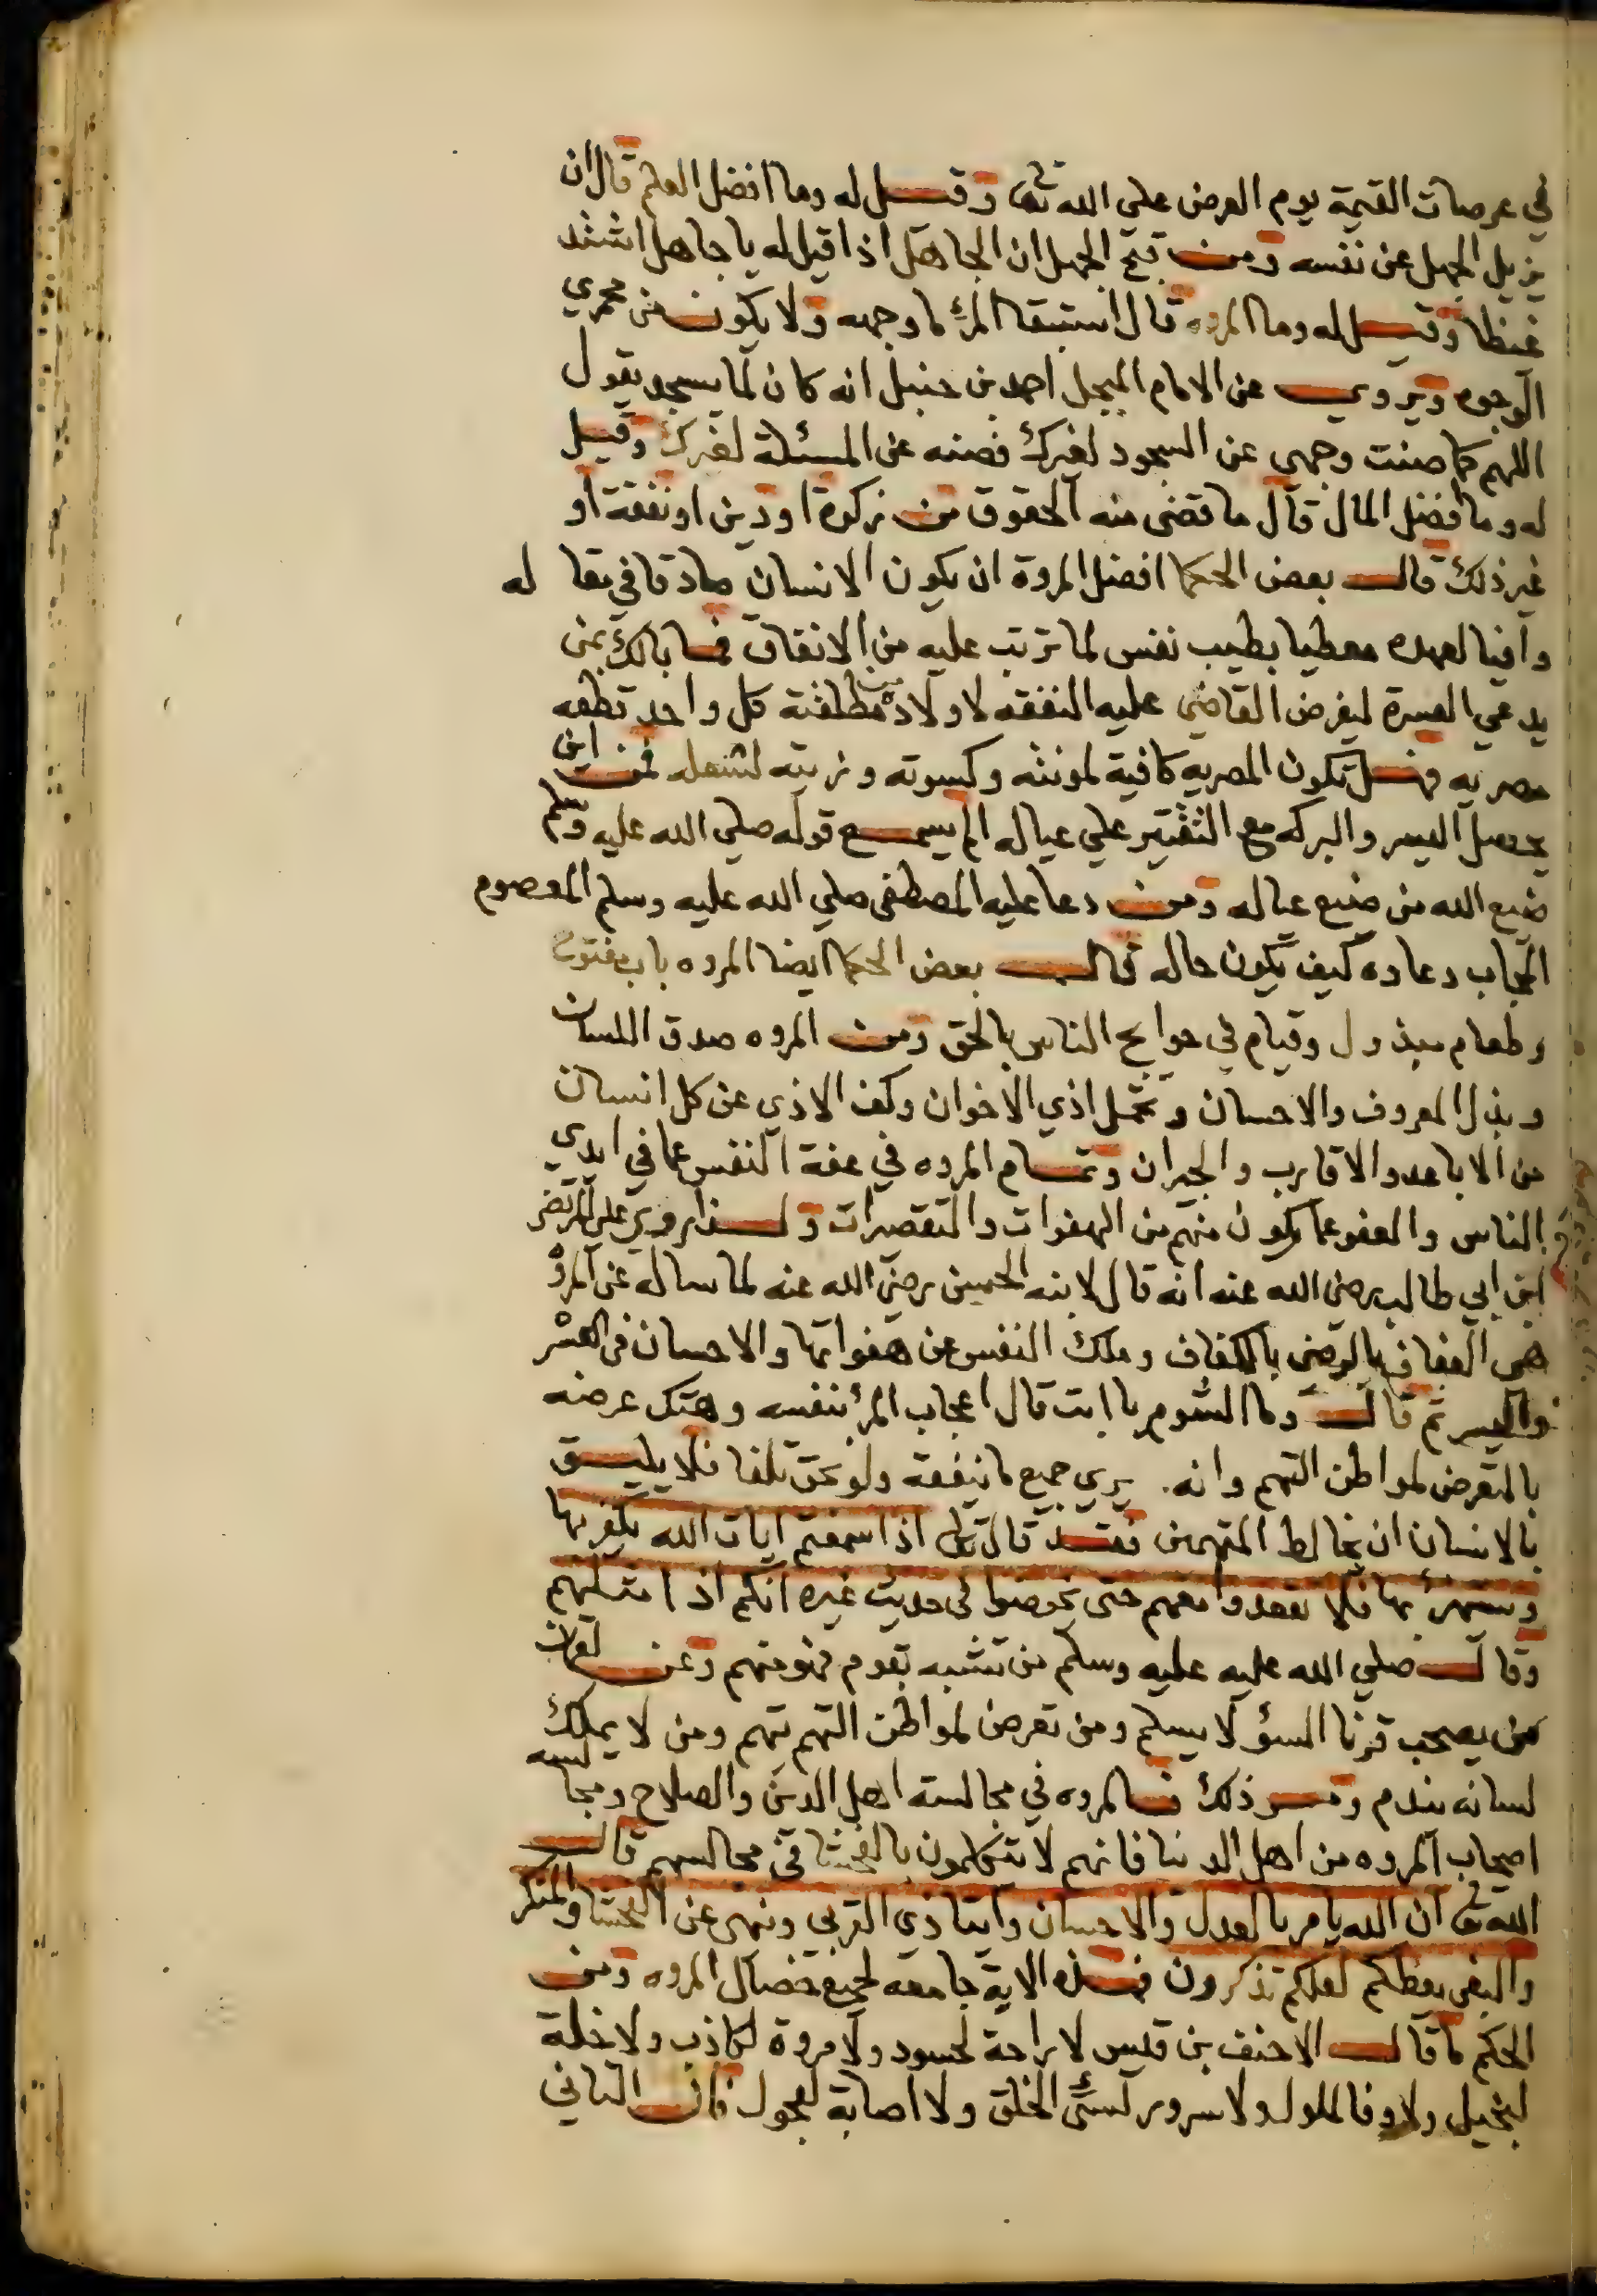 في عرصات القيمة يوم العرض علي الله تعا وقيل له وما افضل العلم قال ان
يزيل الجهل عن نفسه ومن قبح الجهل ان الجاهل اذا قيل له يا جاهل اشتد
غيظا وقيل له وما المروه قال استبقا المرء ما وجهه ولا يكون من مجمري
الوجوه ويروي عن الامام المبجل احمد بن حنبل انه كان لما يسجد يقول
اللهم كما صنت وجهي عن السجود لغيرك فصنه عن المسئلة لغيرك وقيل
له وما افضل المال قال ما قضى منه الحقوق من زكوة او دين او نفقة او
غير ذلك قال بعض الحكما افضل المروة ان يكون الانسان صادقا في مقا له
وافيا لعهده معطيا بطيب نفس لما ترتب عليه من الانفاق فما بالك بمن
يدعي العسرة ليفرض القاضي عليه النفقه لاولاده من مطلقته كل واحد قطعه
مصريه فهل تكون المصريه كافية لمونته وكسوته وزيته لشعله فمن اين
يحصل اليسر والبركه مع التقتير علي عياله الم يسمع قوله صلي الله عليه وسلم
ضيع الله من ضيع عياله ومن دعا عليه المصطفى صلي الله عليه وسلم المعصوم
المجاب دعاده كيف يكون حاله قال بعض الحكما ايضا المروه باب مفتوح
وطعام مبذول وقيام في حوايج الناس بالحق ومن المروه صدق اللسان
وبذل المعروف والاحسان وتحمل اذي الاخوان وكف الاذي عن كل انسان
من الاباعد والاقارب والجيران وتمام المروه في عفة النفس عما في ايدي
الناس والعفو عما يكون منهم من الهفوات والتقصيرات ولذا روي علي المرتضى
ابن ابي طالب رضي الله عنه انه قال لابنه الحسين رضي الله عنه لما ساله عن المروة
هي العفاف بالرضى بالكفاف وملك النفس عن هفواتها والاحسان في العسر
واليسر ثم قال وما الشوم يا ابت قال اعجاب المرء بنفسه وهتك عرضه
بالتعرض لمواطن التهم وانه يري جميع ما ينفقه ولو بحق تلفا فلا يليق
بالانسان ان يخالط المتهمين فقد قال تعا اذا سمعتم ايات الله يكفر بها
ويستهزئ بها فلا تقعدوا معهم حتى يخوضوا في حديث غيره انكم اذا مثلهم
وقال صلي الله عليه عليه وسلم من تشبه بقوم فهو منهم وعن لقمان
من يصحب قرنا السؤ لا يسلم ومن تعرض لمواطن التهم تهم ومن لا يملك
لسانه يندم ومر ذلك فالمروه في مجالسة اهل الدين والصلاح ومجا لسه
اصحاب المروه من اهل الدنيا فانهم لا يتكلمون بالفحشا في مجالسهم قال
الله تعا ان الله يامر بالعدل والاحسان وايتا ذي القربى وينهى عن الفحشا والمنكر
والبغي يعظكم لعلكم تذكرون فهذه الاية جامعه لجميع خصال المروه ومن
الحكم ما قال الاحنف بن قيس لا راحة لحسود ولا مروة لكاذب ولا خلة
لبخيل ولا وفا لملول ولا سرور لسيء الخلق ولا اصابة لعجول فان التاني